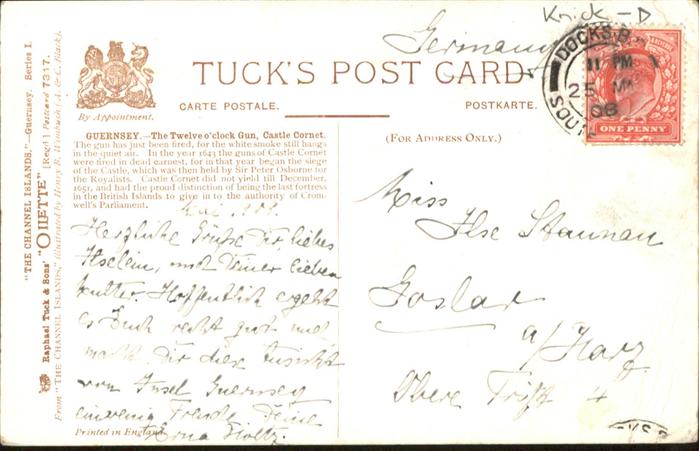 Knick - D
Germany
DOCKS.B.
11 PM
25 MY
08
SOUT
ONE PENNY
By Appointment.
TUCK'S POST CARD
CARTE POSTALE.
POSTKARTE.
"THE CHANNEL ISLANDS."—Guernsey. Series I.
Raphael Tuck & Sons' "OILETTE" [Regd.] Postcard 7317.
From "THE CHANNEL ISLANDS," illustrated by Henry B. Wimbush (A. & C. Black).
GUERNSEY.—The Twelve o'clock Gun, Castle Cornet.
The gun has just been fired, for the white smoke still hangs
in the quiet air. In the year 1643 the guns of Castle Cornet
were fired in dead earnest, for in that year began the siege
of the Castle, which was then held by Sir Peter Osborne for
the Royalists. Castle Cornet did not yield till December,
1651, and had the proud distinction of being the last fortress
in the British Islands to give in to the authority of Crom-
well's Parliament.
(FOR ADDRESS ONLY.)
Mai
Herzliche Grüße Dir liebes
Ilselein, und Deiner lieben
Mutter. Hoffentlich ergeht
es Euch recht gut und
macht Dir diese Ansicht
von Insel Guernsey
ein wenig Freude. Deine
Erna
Printed in England.
Miss
Ilse
Goslar
a/Harz
Obere 4